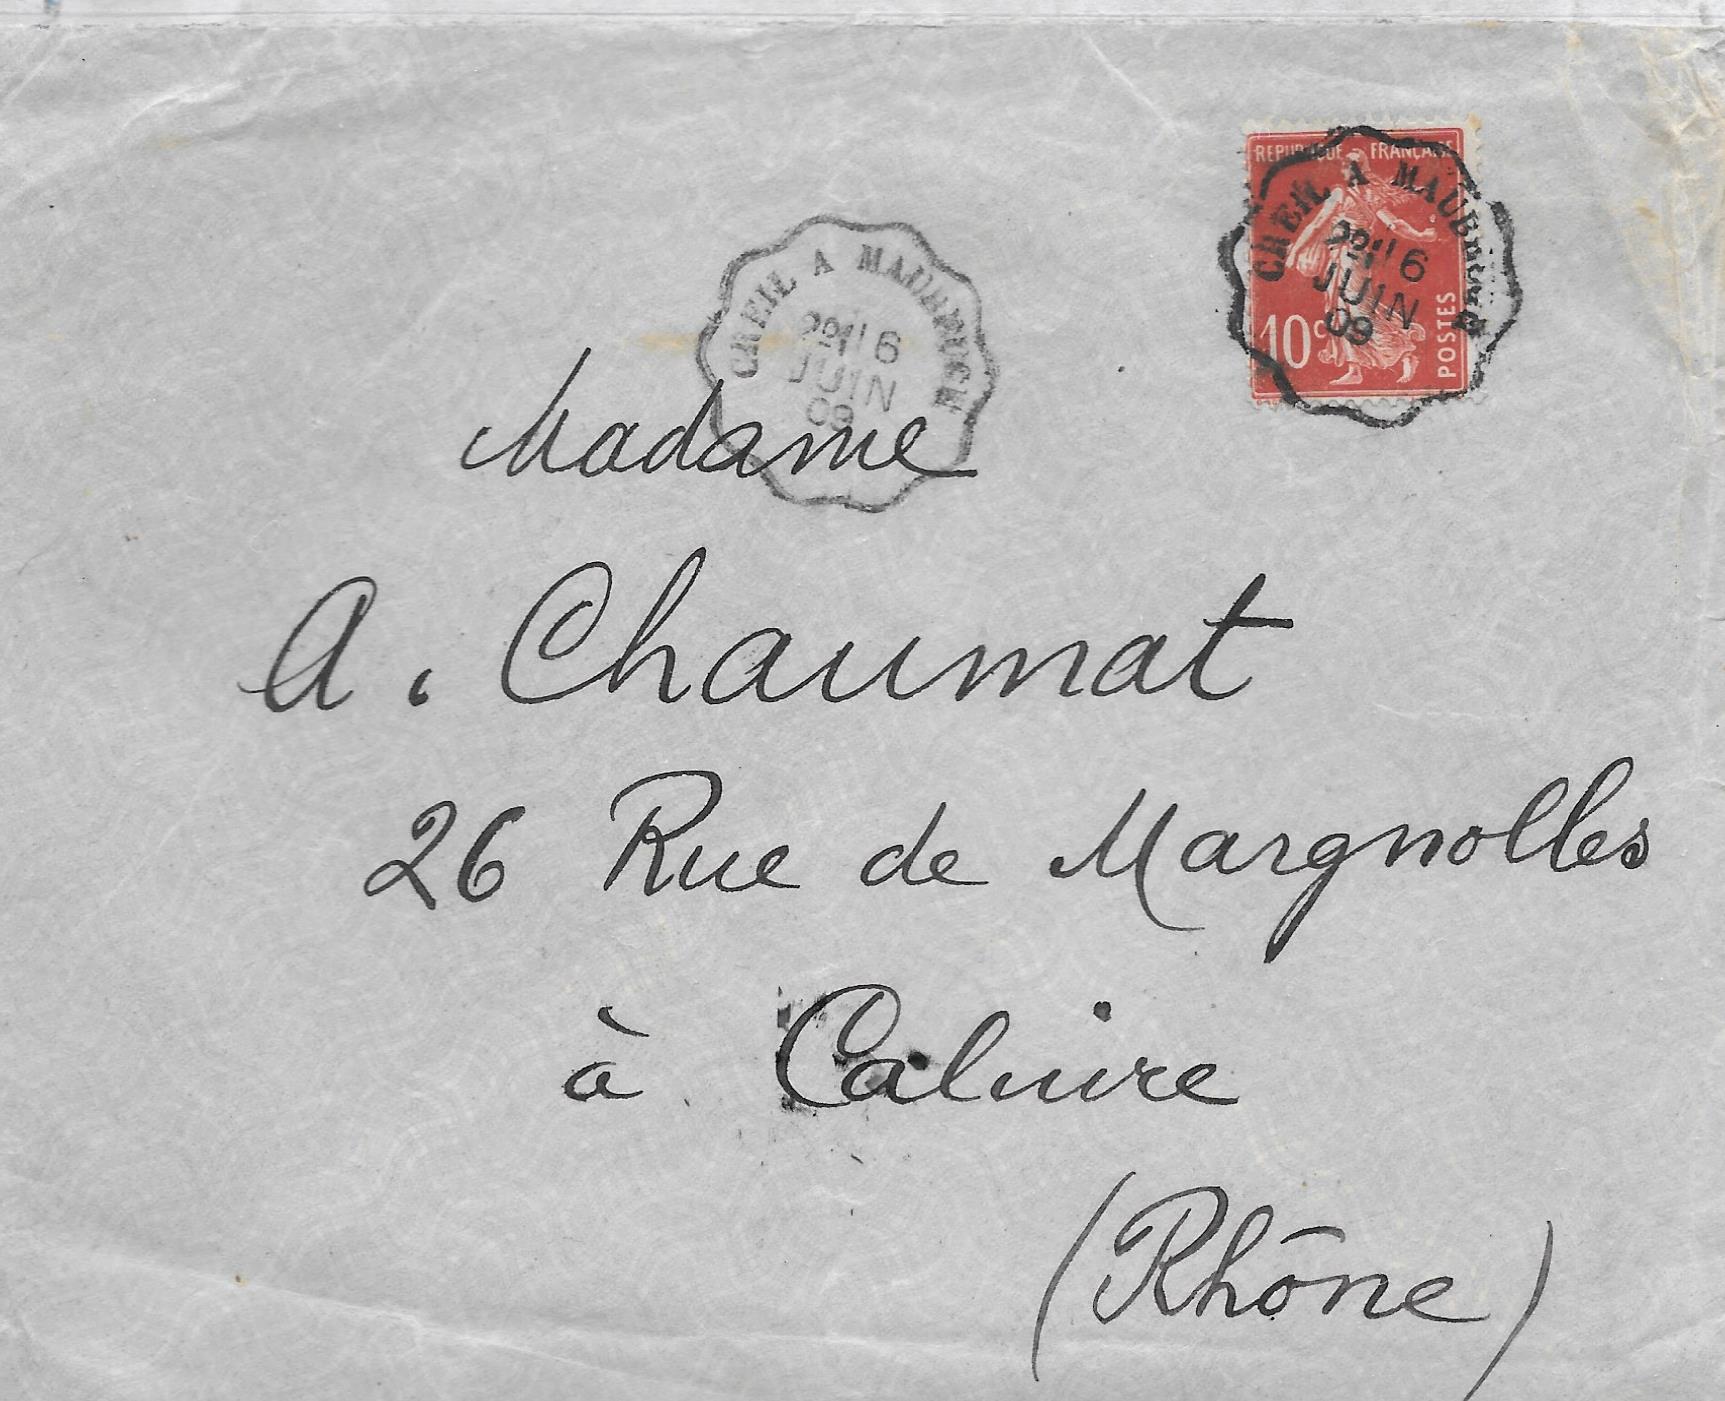 REPUBLIQUE FRANÇAISE
10c
POSTES
CREIL A MAUBEUGE
6
JUIN
09
CREIL A MAUBEUGE
6
JUIN
09
Madame
A. Chaumat
26 Rue de Margnolles
à Caluire
(Rhône)